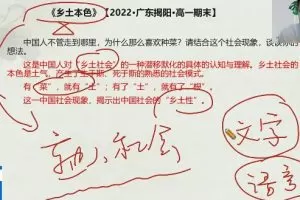 《乡土本色》【2022·广东揭阳·高一期末】
中国人不管走到哪里，为什么那么喜欢种菜？请结合这个社会现象，谈谈你的
想法。
这是中国人对「乡土社会」的一种潜移默化的具体的认知与理解。乡土社会的
本色是土气，产生了生于斯、死于斯的熟悉的社会模式。
有「菜」，就有「土」；有了「土」，就有了"根"。
这一中国社会现象，揭示出中国社会的「乡土性」。
熟人社会
文字
语言